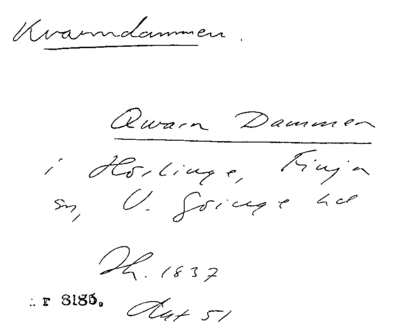 Kvarndammen.
Qwarn Dammen
i Hörlinge, Finja
sn, V. Göinge hd
Jh. 1837
r 8185.
Akt 51